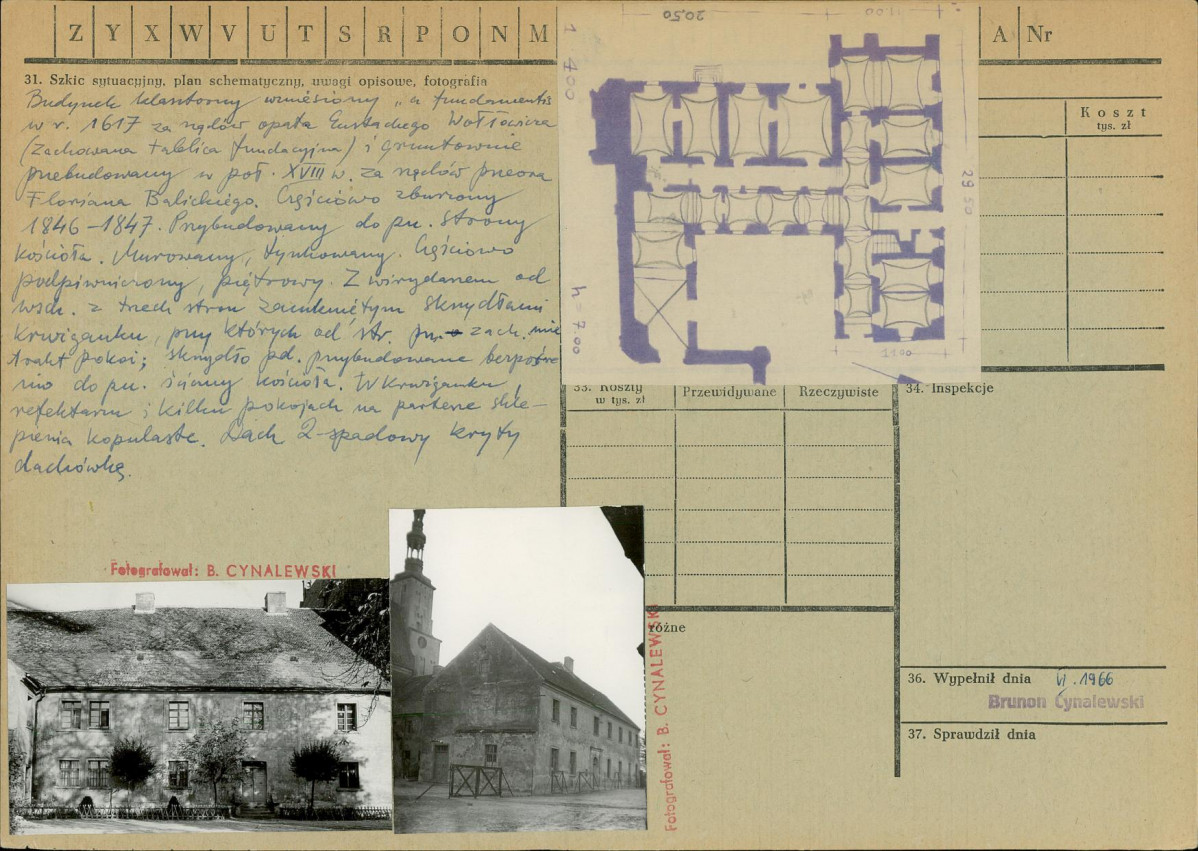 Z Y X W V U T S R P O N M
A Nr
31. Szkic sytuacyjny, plan schematyczny, uwagi opisowe, fotografia
Budynek klasztorny wzniesiony „a fundamentis
w r. 1617 za rządów opata Eustachego Wołłowicza
(zachowana tablica fundacyjna) i gruntownie
przebudowany w poł. XVIII w. za rządów przeora
Floriana Balickiego. Częściowo zburzony
1846-1847. Przybudowany do pn. strony
kościoła. Murowany, tynkowany. Częściowo
podpiwniczony, piętrowy. Z wirydarzem od
wsch. z trzech stron zamkniętym skrzydłami
krużganku, przy których od str. pn. zach. mie
trakt pokoi; skrzydło pd. przybudowane bezpośre
nio do pn. ściany kościoła. W krużganku,
refektarzu i kilku pokojach na parterze skle-
pienia kopulaste. Dach 2-spadowy kryty
dachówką.
1 400
20,50
11.00
29.50
h = 7.00
11.00
Koszt
tys. zł
33. Koszty
w tys. zł
Przewidywane
Rzeczywiste
34. Inspekcje
różne
36. Wypełnił dnia VI.1966
Brunon Cynalewski
37. Sprawdził dnia
Fotografował: B. CYNALEWSKI
Fotografował: B. CYNALEWSKI